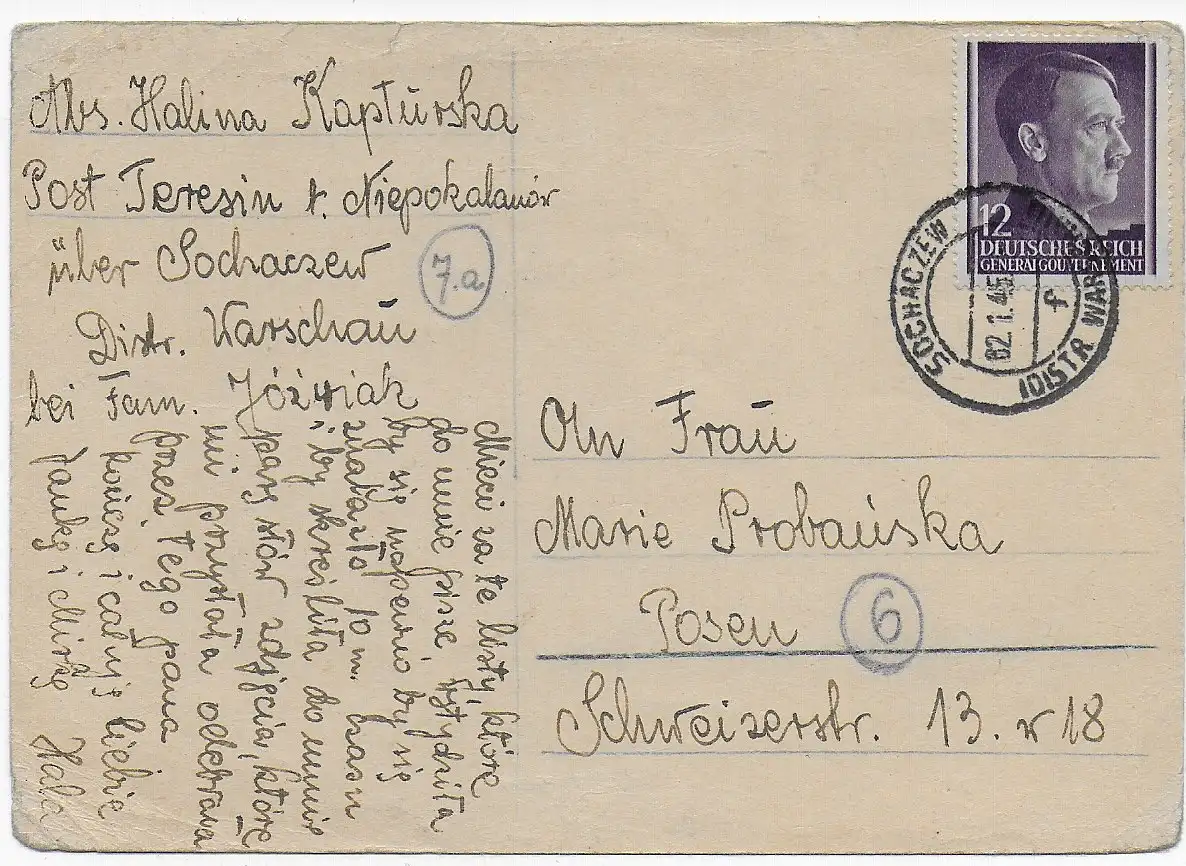 Abs. Halina Kaptŭrska
Post Teresin k. Niepokalanów
über Sochaczew
7.a
Distr. Warschaŭ
bei Fam. Jóźwiak
Mieci za te listy które
do mnie pisze, Wstydziła
by się napewno by się
znalazło to m. czasu
i by skreśliła do mnie
parę słów zdjęcia, które
mi przysłała odebrała
przez tego pana
kończę i całuję Ciebie
Jankę i Mirkę Hala
12
DEUTSCHES REICH
GENERALGOUVERNEMENT
SOCHACZEW
(DISTR. WAR
f
An Fraŭ
Marie Probańska
Posen 6
Schweizerstr. 13. w 18